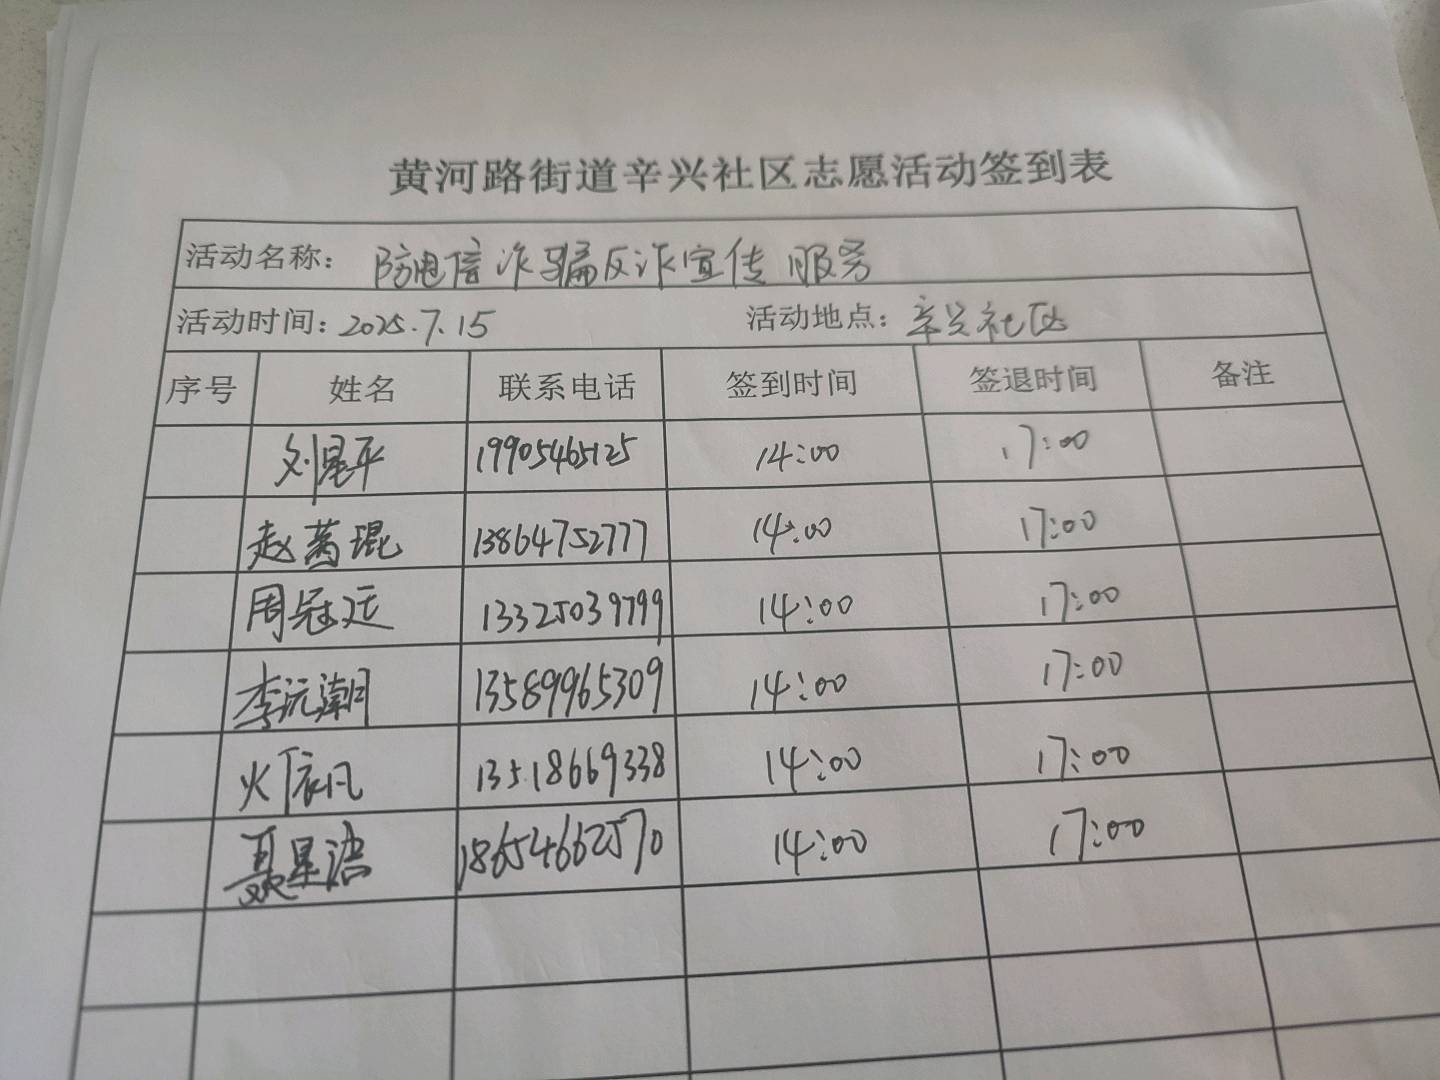 黄河路街道辛兴社区志愿活动签到表
活动名称： 防电信诈骗反诈宣传服务
活动时间：2025.7.15 活动地点：辛兴社区
序号 姓名 联系电话 签到时间 签退时间 备注
刘星平 19905465125 14:00 17:00
赵茜琨 13864752777 14:00 17:00
周冠廷 13325039799 14:00 17:00
李沅潮 13589965309 14:00 17:00
13518669338 14:00 17:00
聂星语 18654662570 14:00 17:00